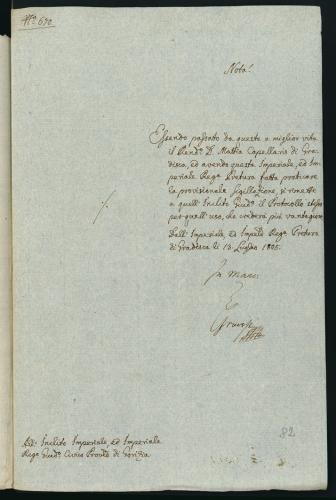 No. 670
Nota!
Essendo passato da questa a miglior vita
il Rendo. D. Mattia Capellaris di Gra-
disca, ed avendo questa Imperiale, ed Im-
periale Rega. Pretura fatta praticare
la provisionale sigillazione, si rimette
a quell' Inclito Giudo. il Protocollo
per quell' uso, che crederà più vantaggioso
Dall' Imperiale, ed Imple. Rega. Pretura
di Gradisca li 13. 1805.
82
Inclito Imperiale, ed Imperiale
Rego. Giudo. Civico Provle. di Gorizia